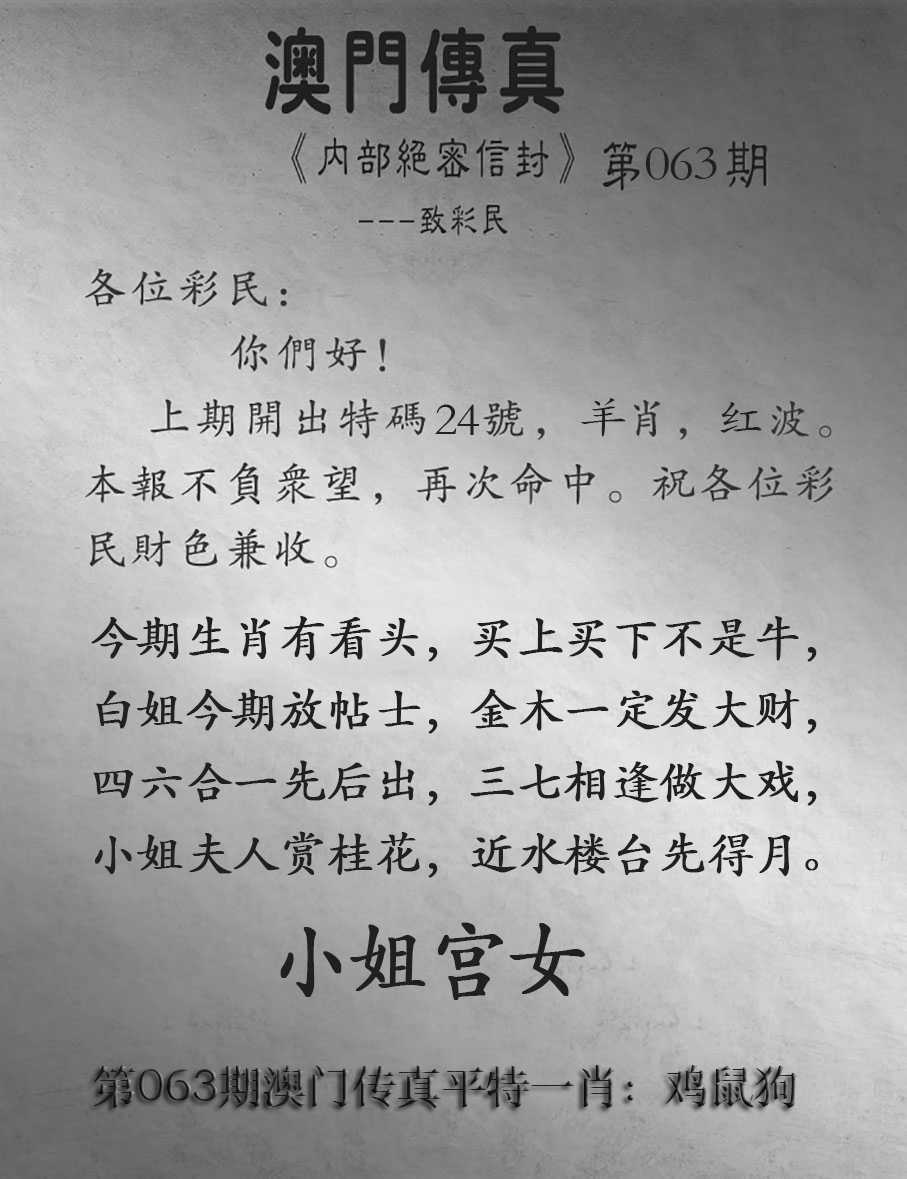 澳門傳真
《内部絕密信封》第063期
---致彩民
各位彩民：
你們好！
上期開出特碼24號，羊肖，红波。
本報不負衆望，再次命中。祝各位彩
民財色兼收。
今期生肖有看头，买上买下不是牛，
白姐今期放帖士，金木一定发大财，
四六合一先后出，三七相逢做大戏，
小姐夫人赏桂花，近水楼台先得月。
小姐宫女
第063期澳门传真平特一肖：鸡鼠狗